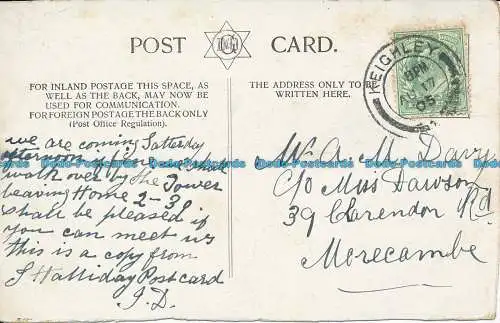 POST CARD.
FOR INLAND POSTAGE THIS SPACE, AS
WELL AS THE BACK, MAY NOW BE
USED FOR COMMUNICATION.
FOR FOREIGN POSTAGE THE BACK ONLY
(Post Office Regulation).
THE ADDRESS ONLY TO BE
WRITTEN HERE.
KEIGHLEY
17
we are coming Saturday
afternoon
walk over by the Tower
leaving Home 2-30
shall be pleased if
you can meet us
this is a copy from
S Halliday Postcard
J.D.
W. A. M. Davy
C/o Miss Dawson
39 Clarendon Rd
Morecambe
Postcards Postcards Postcards Postcards Postcards Postcards